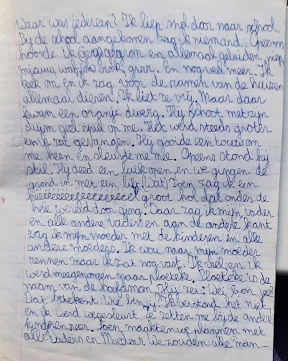 Waar was iedereen? Ik liep snel door naar school
Bij de school aangekomen zag ik niemand. Opeens
hoorde ik en allemaal geluiden, piep
miauw woef oink grar. En nog veel meer. Ik
keek om en ik zag voor de ramen van de huizen
allemaal dieren! Ik liet ze vrij. Maar daar
kwam een oranje dwerg. Hij schoot met zijn
duim geel spul op me. Het werd steeds groter
en ik zat gevangen. Hij gooide een touw om
me heen en sleurde me mee. Opeens stond hij
stil. Hij deed een luik open en we gingen de
grond in met een lift. Wat! Toen zag ik een
heeeeeeeeeeeeeeeeel groot hol dat onder de
hele wereld door ging. Daar zag ik mijn vader
en alle andere vaders en aan de andere kant
zag ik mijn moeder met de kinderen en alle
andere moeders. Ik wou naar mijn moeder
rennen maar ik zat nog vast. Ik viel en ik
werd meegenomen naar ploeteke. Ploeteke is de
naam van de hoofdman. Hij zei:
Dat betekent Wie ben jij. Ik verstond het niet
en ik werd weggeleurd. Ze zetten me bij de andere
kinderen neer. Toen maakten we plannen met
alle vaders en Moeders. We zouden alle man-